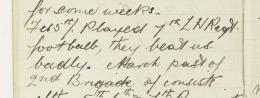 for some weeks.
Feb 5th, Played 7th LH Regt.
football, they beat us
badly. March past of
2nd Brigade of consists
5th